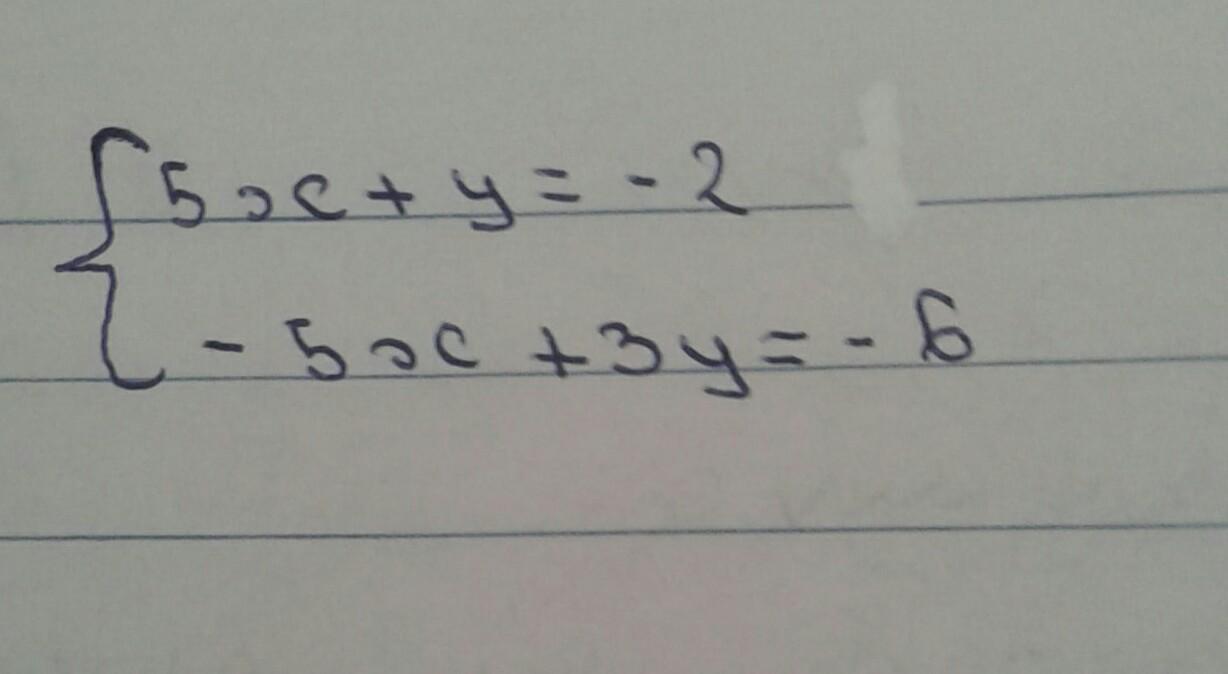 5x + y = - 2
- 5x + 3y = - 6